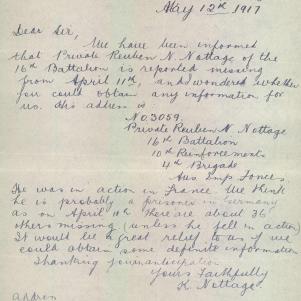 May 12th 1917
Dear Sir,
We have been informed
that Private Reuben N. Nottage of the
16th Battalion is reported missing
from April 11th, and wondered whether
you could obtain any information for
us. His address is
No. 3059.
Private Reuben N. Nottage
16th Battalion
10th Reinforcements
4th Brigade
Aus Emp Forces.
He was in action in France. We think
he is probably a prisoner in Germany
as on April 11th there are about 36
others missing (unless he fell in action)
It would be a great relief to us if we
could obtain some definite information
Thanking you in anticipation
Yours Faithfully
K. Nottage.